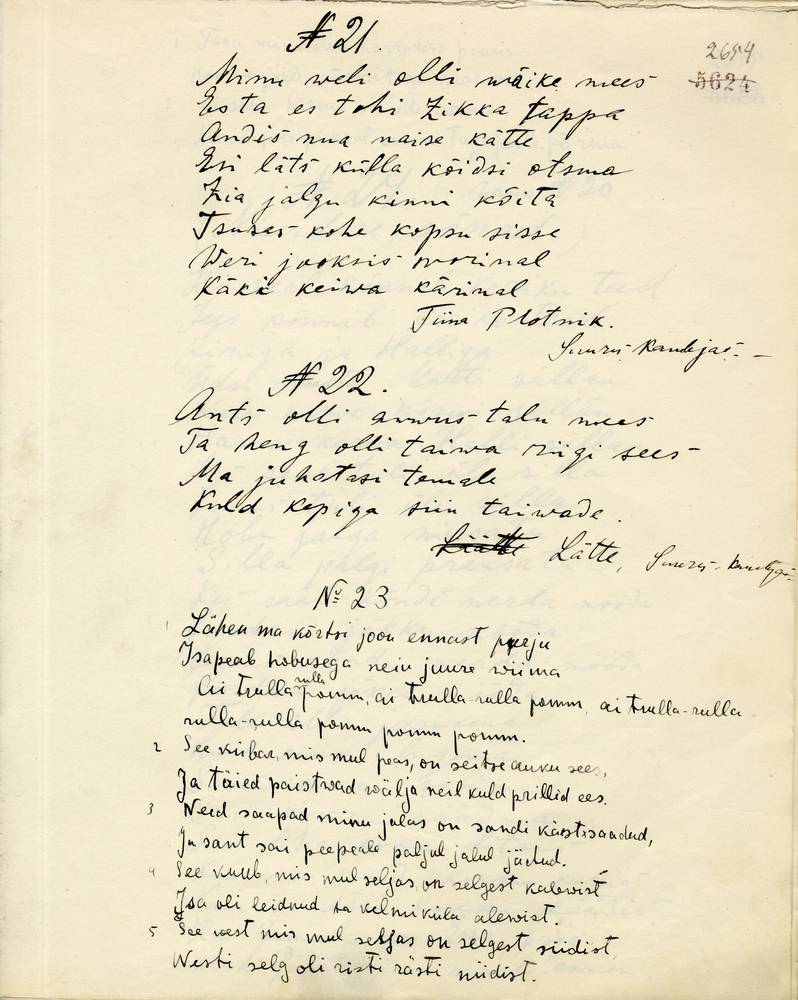 № 21.
2654
5624
Minu weli olli wäike mees
Es ta es tohi Zikka tappa
Andis nua naise kätte
Esi läts külla köidsi otsma
Zia jalgu kinni köita
Tsusas kohe kopsu sisse
Weri jooksis worinal
Käkk keiwa kärinal
Tiina Plotnik.
Suures-Kambjas. –
№ 22.
Ants olli auwus talu mees
Ta heng olli taiwa riigi sees
Ma juhatasi temale
Kuld kepiga siin taiwade.
Läätte Lätte, Suures-Kambjas
№ 23
1 Lähen ma kõrtsi joon ennast purju
Isa peab hobusega neiu juure wiima
Ai trulla rulla pomm, ai trulla-rulla pomm, ai trulla-rulla
rulla-rulla pomm pomm pomm.
2 See kübar, mis mul peas, on seitse auku sees,
Ja täied paistwad wälja neil kuld prillid ees.
3 Need saapad minu jalas on sandi käest saadud,
Ja sant sai peepeale paljul jalul jäetud.
4 See kuub, mis mul seljas, on selgest kalewist
Isa oli leidnud ta kelmiküla alewist.
5 See west mis mul seljas on selgest siidist,
Westi selg oli risti rästi niidist.